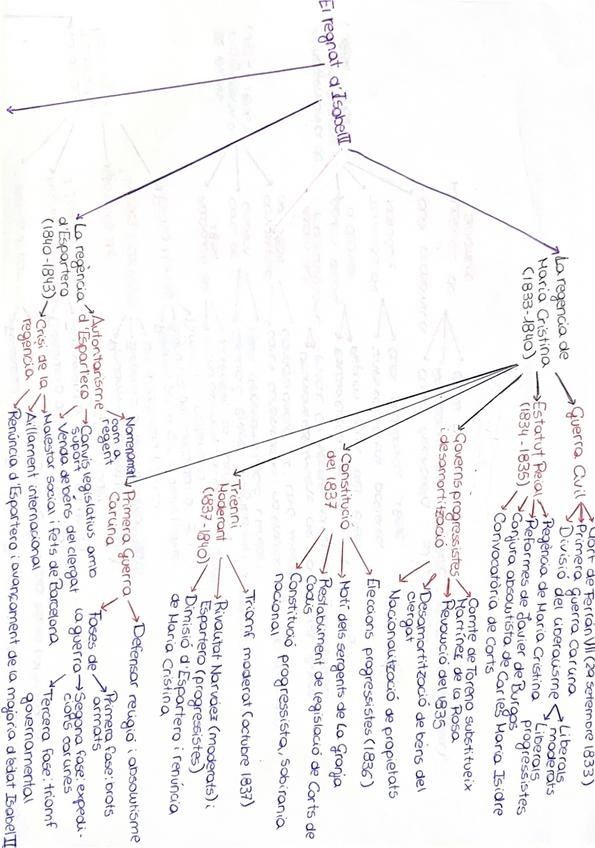 El regnat d'Isabel II
La regència de
Maria Cristina
(1833-1840)
Guerra Civil
Mort de Ferran VII (29 setembre 1833)
Primera guerra Carlina
Divisió del liberalisme
Liberals
moderats
Liberals
progressistes
Estatut Reial
(1834-1835)
Regència de Maria Cristina
Reformes de Javier de Burgos
Conjura absolutista de Carles Maria Isidre
Convocatòria de Corts
Governs progressistes
i desamortització
Comte de Toreno substitueix
Martínez de la Rosa
Revolució del 1835
Desamortització de béns del
clergat
Nacionalització de propietats
Constitució
del 1837
Eleccions progressistes (1836)
Motí dels sergents de la Granja
Restabliment de legislació de Corts de
Cadis
Constitució progressista, sobirania
nacional
Trienni
Moderant
(1837-1840)
Triomf moderat (octubre 1837)
Rivalitat Narváez (moderats) i
Espartero (progressistes)
Dimisió d'Espartero i renúncia
de Maria Cristina
Primera Guerra
Carlina
Defensar religió i absolutisme
Fases de
la guerra
Primera fase: brots
armats
Segona fase: expedi-
cions carlines
Tercera fase: triomf
governamental
La regència
d'Espartero
(1840-1843)
Autoritarisme
d'Espartero
Nomenament
com a
regent
Canvis legislatius amb
suport
Venda de béns del clergat
Crisi de la
regència
Malestar social i fets de Barcelona
Aïllament internacional
Renúncia d'Espartero i avançament de la majoria d'edat Isabel II